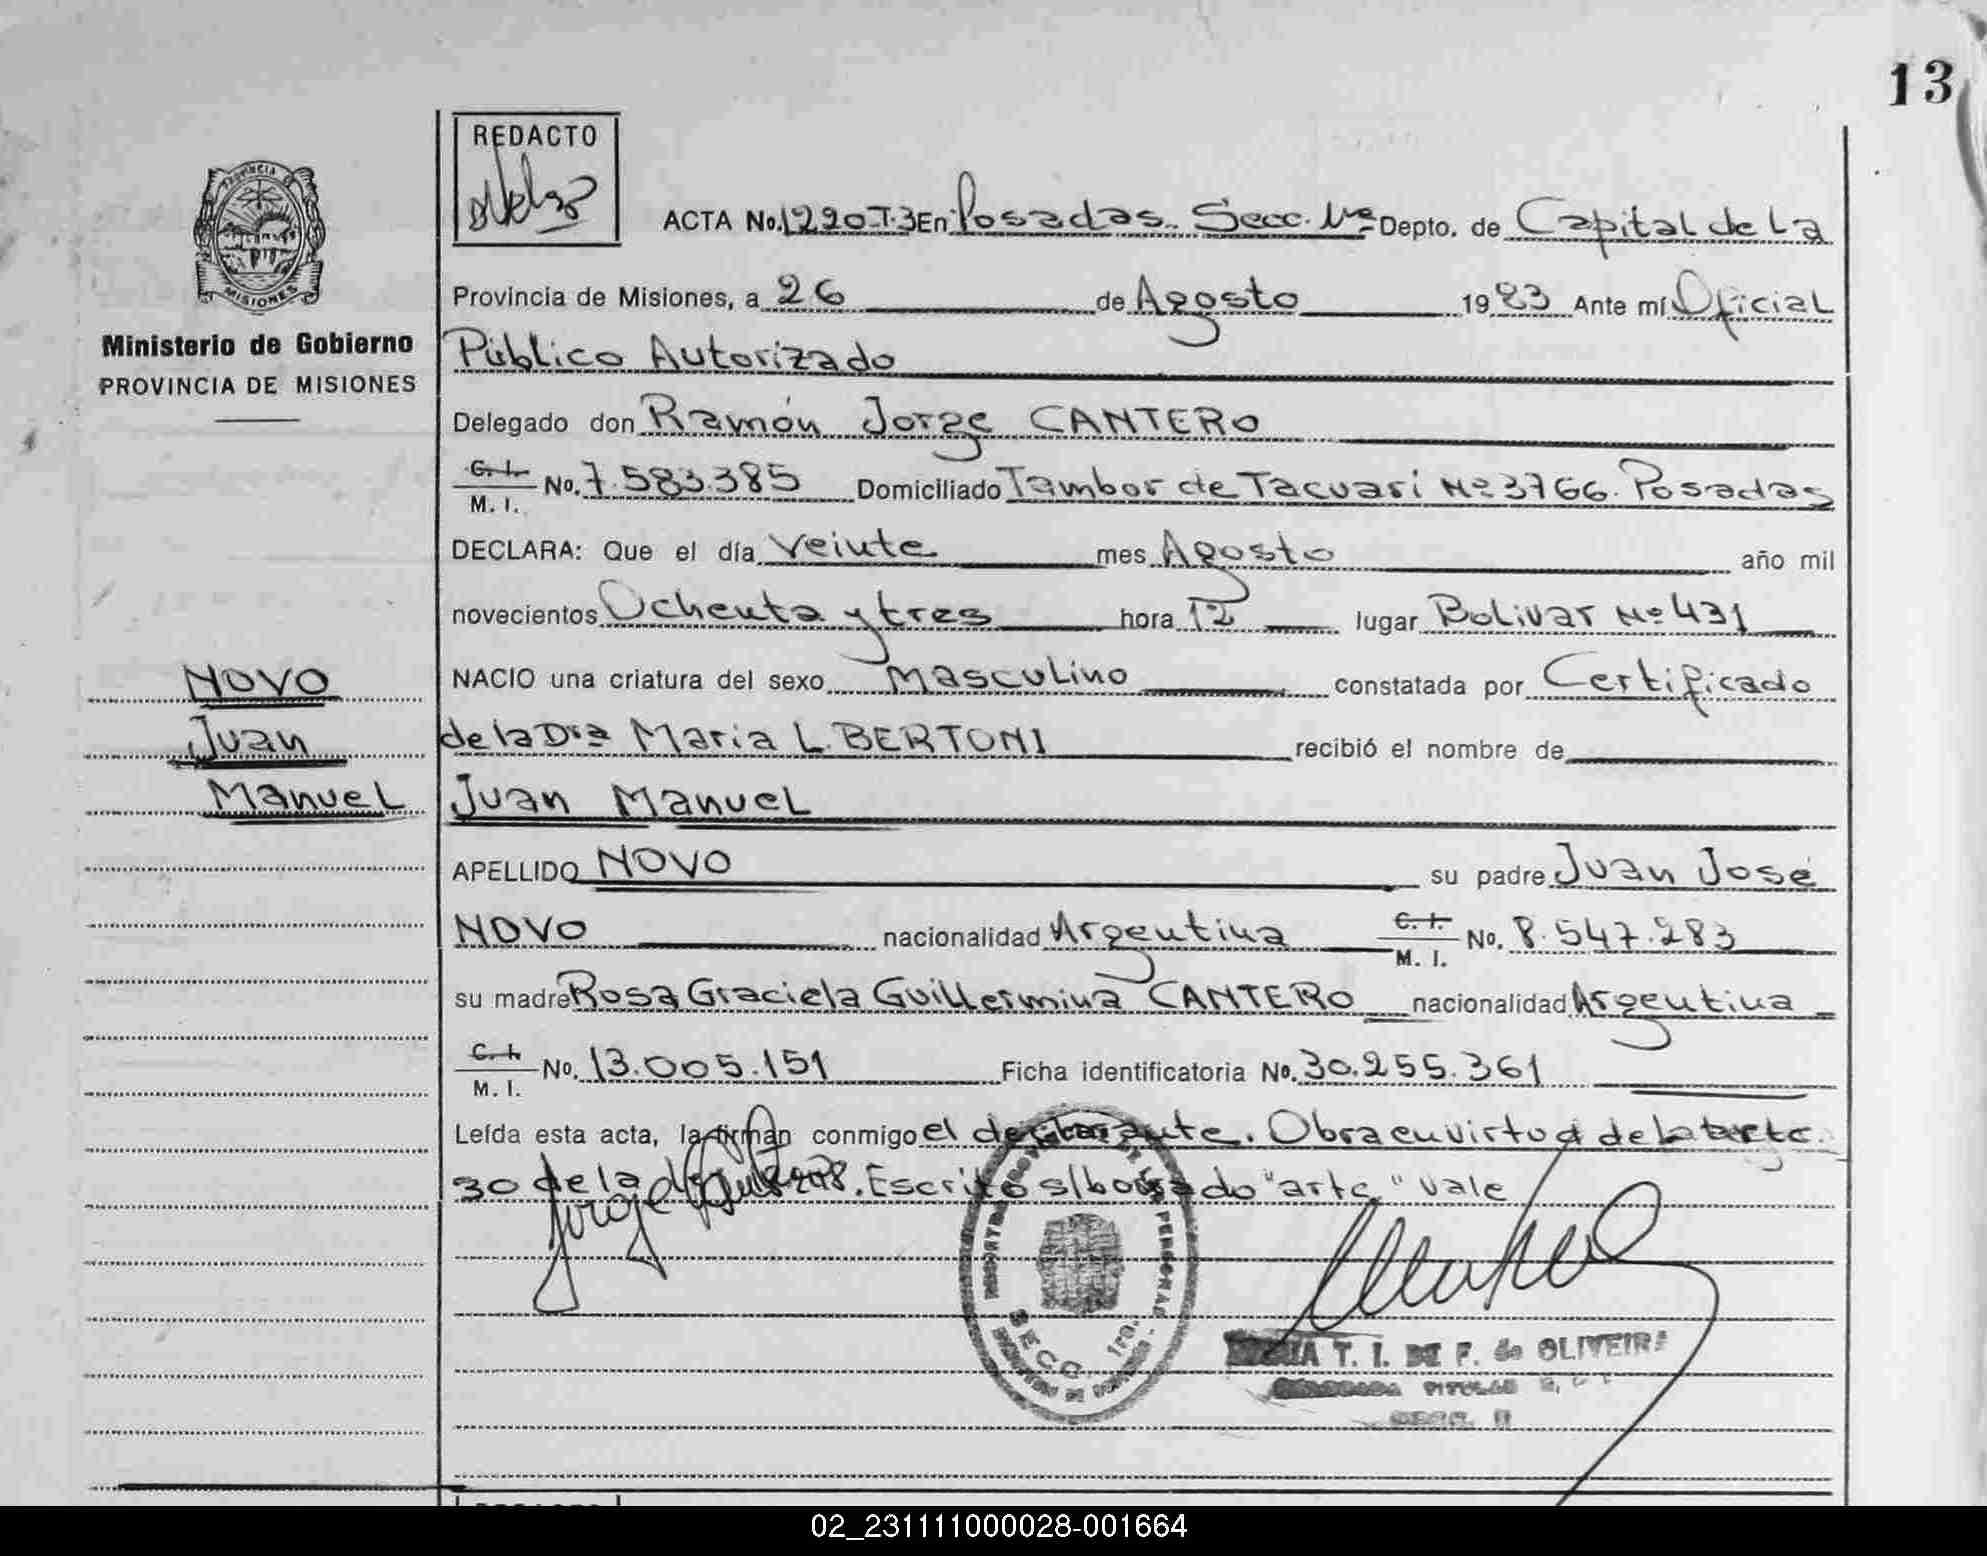 13
REDACTO
PROVINCIA DE
MISIONES
Ministerio de Gobierno
PROVINCIA DE MISIONES
NOVO
Juan
Manuel
ACTA No. 1220-T.3 En Posadas. Secc. 1ra Depto. de Capital de La
Provincia de Misiones, a 26 de Agosto 1983 Ante mí Oficial
Público Autorizado
Delegado don Ramón Jorge CANTERO
C. I. M. I. No. 7.583.385 Domiciliado Tambor de Tacuari Nº 3766. Posadas
DECLARA: Que el día Veinte mes Agosto año mil
novecientos Ochenta y tres hora 12 lugar Bolivar Nº 431
NACIO una criatura del sexo Masculino constatada por Certificado
de la Dra Maria L. BERTONI recibió el nombre de
Juan Manuel
APELLIDO NOVO su padre Juan José
NOVO nacionalidad Argentina C. I. M. I. No. 8.547.283
su madre Rosa Graciela Guillermina CANTERO nacionalidad Argentina
C. I. M. I. No. 13.005.151 Ficha identificatoria No. 30.255.361
Leída esta acta, la firman conmigo el declarante. Obra en virtud de la
30 de la Escrito s/borrado "arta" vale
SECC. 1ra.
T. I. DE F. de OLIVEIRA
02_231111000028-001664